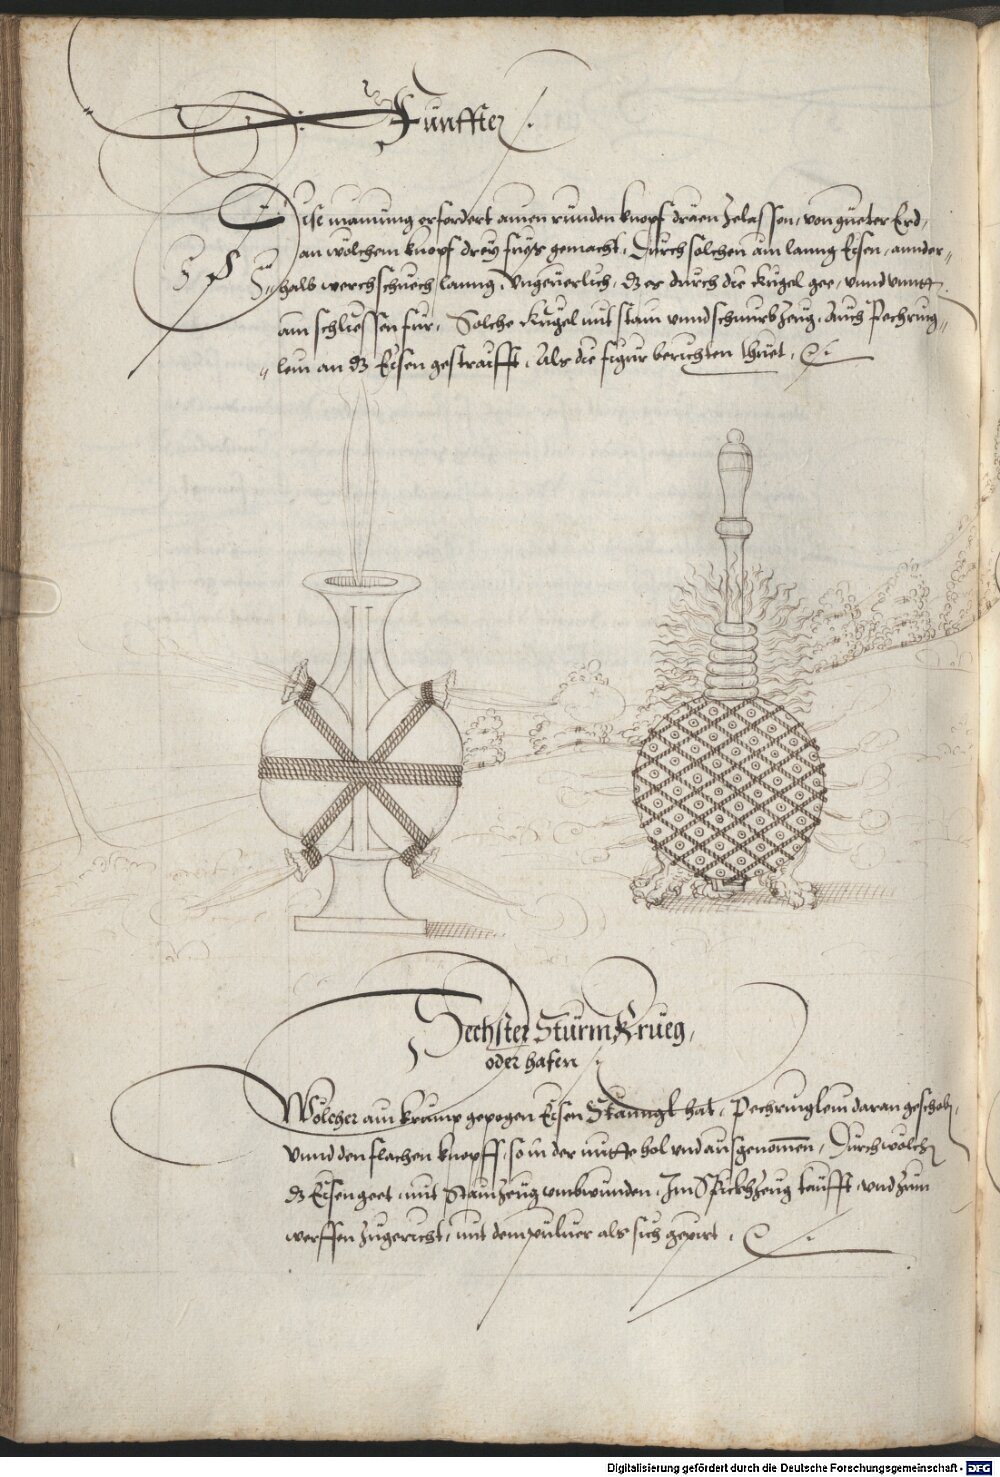 Fünffter
Dise mainung erfordert ainen runden knopf dräen zelassen, von gueter Erd,
an wölchem knopf drey füess gemacht, Durch solchen ain lanng Eisen, annder-
halb werchschuech lanng, ungeuerlich, dz es durch die kugel gee, unnd unntt
ain schliessen für, Solche kugel mit stain unnd schnurbzeug, Auch Pechring-
lein an dz Eisen gestraifft, Als die figur berichten thuet,
Sechster Sturm Krueg,
oder hafen
Wölcher ain krump gepogen Eisen Stanngl hat, Pechringlein daran geschobn,
unnd den flachen knopff, so in der mitte hol und ausgenomen, Durch wölchn
dz Eisen geet, mit Stainzeug umbwunden, Im Spickhzeug taufft, und zum
werffen zugericht, mit dem puluer als sich gepirt,
Digitalisierung gefördert durch die Deutsche Forschungsgemeinschaft - DFG